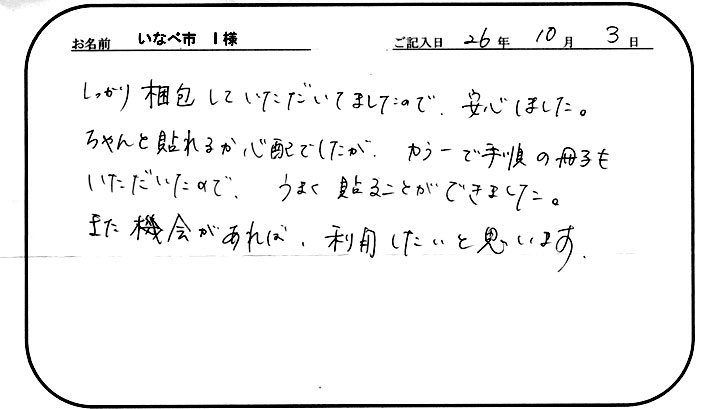 お名前 いなべ市 I様 ご記入日 26年 10月 3日
しっかり梱包していただいてましたので、安心しました。
ちゃんと貼れるか心配でしたが、カラーで手順の冊子も
いただいたので、うまく貼ることができました。
また機会があれば、利用したいと思います.